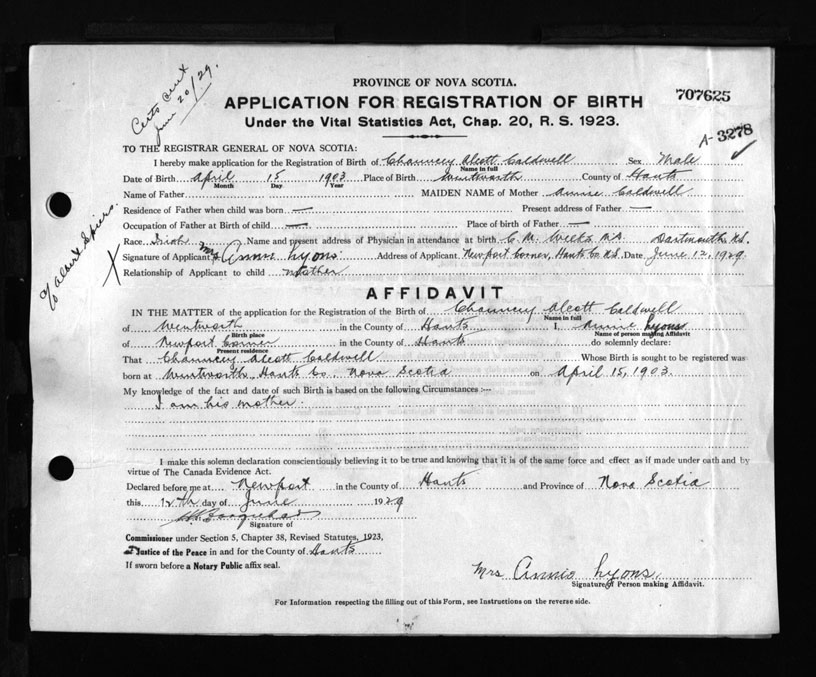 Certs sent
June 20/29.
PROVINCE OF NOVA SCOTIA.
APPLICATION FOR REGISTRATION OF BIRTH
707625
Under the Vital Statistics Act, Chap. 20, R. S. 1923.
A-3278
TO THE REGISTRAR GENERAL OF NOVA SCOTIA:
I hereby make application for the Registration of Birth of Chauncey Alcott Caldwell Sex Male
Name in full
Date of Birth April 15 1903 Place of Birth Wentworth County of Hants
Month Day Year
Name of Father MAIDEN NAME of Mother Annie Caldwell
Residence of Father when child was born — Present address of Father —
Occupation of Father at Birth of child —. Place of birth of Father —
Race. Irish Name and present address of Physician in attendance at birth C. M. Weeks M.D. Dartmouth N.S.
Signature of Applicant Mrs Annie Lyons Address of Applicant. Newport Corner, Hants Co. N.S. Date. June 12, 1929.
Relationship of Applicant to child mother
c/o Albert Spiers.
X
AFFIDAVIT
IN THE MATTER of the application for the Registration of the Birth of Chauncey Alcott Caldwell
Name in full
of Wentworth in the County of Hants I, Annie Lyons
Birth place Name of person making Affidavit
of Newport Corner in the County of Hants do solemnly declare:
Present residence
That Chauncey Alcott Caldwell Whose Birth is sought to be registered was
born at Wentworth, Hants Co Nova Scotia on April 15, 1903.
My knowledge of the fact and date of such Birth is based on the following Circumstances :—
I am his mother.
I make this solemn declaration conscientiously believing it to be true and knowing that it is of the same force and effect as if made under oath and by
virtue of The Canada Evidence Act.
Declared before me at Newport in the County of Hants and Province of Nova Scotia
this 12th day of June 1929
Signature of
Commissioner under Section 5, Chapter 38, Revised Statutes, 1923,
Justice of the Peace in and for the County of Hants
If sworn before a Notary Public affix seal.
Mrs Annie Lyons
Signature of Person making Affidavit.
For Information respecting the filling out of this Form, see Instructions on the reverse side.